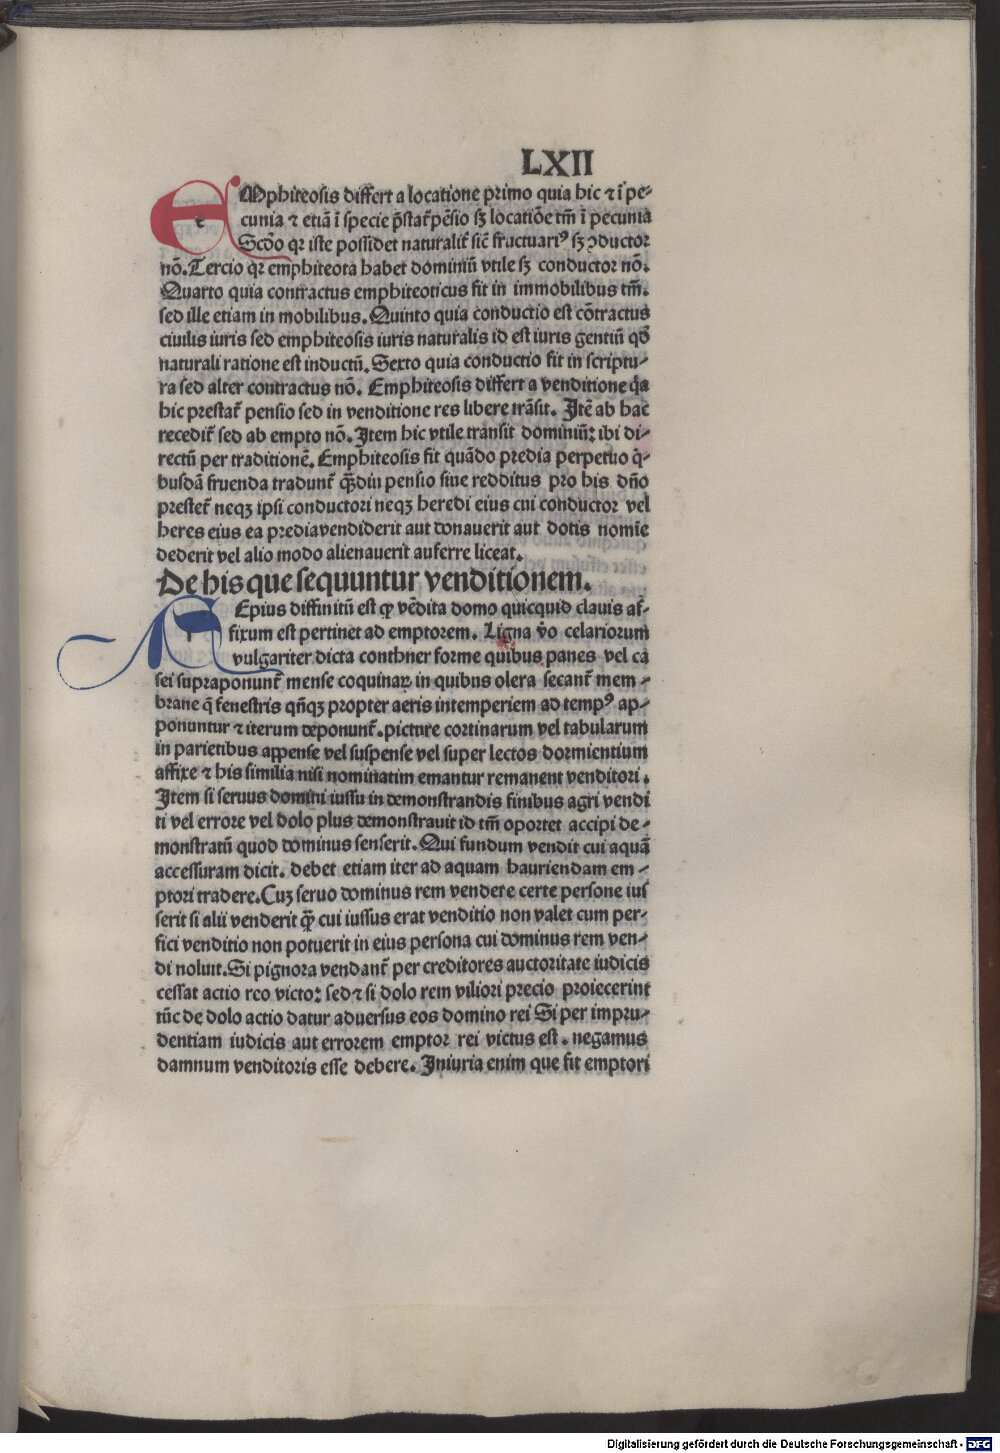 LXII
EMphiteosis differt a locatione primo quia hic ⁊ ī pe⸗
cunia ⁊ etiā ī specie p̄stat᷑ pēsio sꝫ locatiōe tm̄ ī pecunia
Scd̄o qꝛ iste possidet naturalit᷑ sic̄ fructuariꝰ sꝫ ↄductor
nō. Tercio qꝛ emphiteota habet dominiū vtile sꝫ conductor nō.
Quarto quia contractus emphiteoticus fit in immobilibus tm̄.
sed ille etiam in mobilibus. Quinto quia conductio est cōtractus
ciuilis iuris sed emphiteosis iuris naturalis id est iuris gentiū qd̄
naturali ratione est inductū. Sexto quia conductio fit in scriptu⸗
ra sed alter contractus nō. Emphiteosis differt a venditione q̄a
hic prestat᷑ pensio sed in venditione res libere trāsit. Itē ab hac
recedit᷑ sed ab empto nō. Item hic vtile transit dominiū: ibi di⸗
rectū per traditionē. Emphiteosis fit quādo predia perpetuo q̄⸗
busdā fruenda tradunt᷑ qꝫ̄diu pensio siue redditus pro his dn̄o
prestet᷑ neqꝫ ipsi conductori neqꝫ heredi eius cui conductor vel
heres eius ea predia vendiderit aut donauerit aut dotis nomīe
dederit vel alio modo alienauerit auferre liceat.
De his que sequuntur venditionem.
Epius diffinitū est ꝙ vēdita domo quicquid clauis af⸗
fixum est pertinet ad emptorem. Ligna v̄o celariorum
vulgariter dicta conthner forme quibus panes vel ca
sei supraponunt᷑ mense coquinaꝝ in quibus olera secant᷑ mem⸗
brane q̄ fenestris qn̄qꝫ propter aeris intemperiem ad tempꝰ ap⸗
ponuntur ⁊ iterum deponunt᷑. picture cortinarum vel tabularum
in parietibus appense vel suspense vel super lectos dormientium
affixe ⁊ his similia nisi nominatim emantur remanent venditori.
Item si seruus domini iussu in demonstrandis finibus agri vendi
ti vel errore vel dolo plus demonstrauit id tm̄ oportet accipi de⸗
monstratū quod dominus senserit. Qui fundum vendit cui aquā
accessuram dicit. debet etiam iter ad aquam hauriendam em⸗
ptori tradere. Cuꝫ seruo dominus rem vendere certe persone ius
serit si alii venderit qꝫ̄ cui iussus erat venditio non valet cum per⸗
fici venditio non potuerit in eius persona cui dominus rem ven⸗
di noluit. Si pignora vendant᷑ per creditores auctoritate iudicis
cessat actio reo victo: sed ⁊ si dolo rem viliori precio proiecerint
tūc de dolo actio datur aduersus eos domino rei Si per impru⸗
dentiam iudicis aut errorem emptor rei victus est. negamus
damnum venditoris esse debere. Iniuria enim que fit emptori
Digitalisierung gefördert durch die Deutsche Forschungsgemeinschaft - DFG